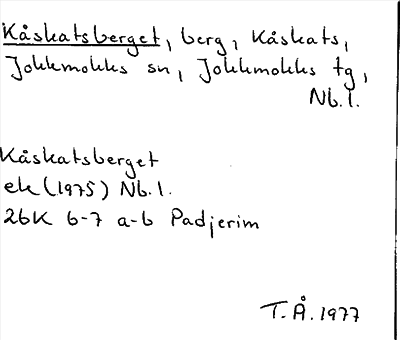 Kåskatsberget, berg, Kåskats,
Jokkmokks sn, Jokkmokks tg,
Nb. l.
Kåskatsberget
ek (1975) Nb. l.
26K 6-7 a-b Padjerim
T.Å. 1977